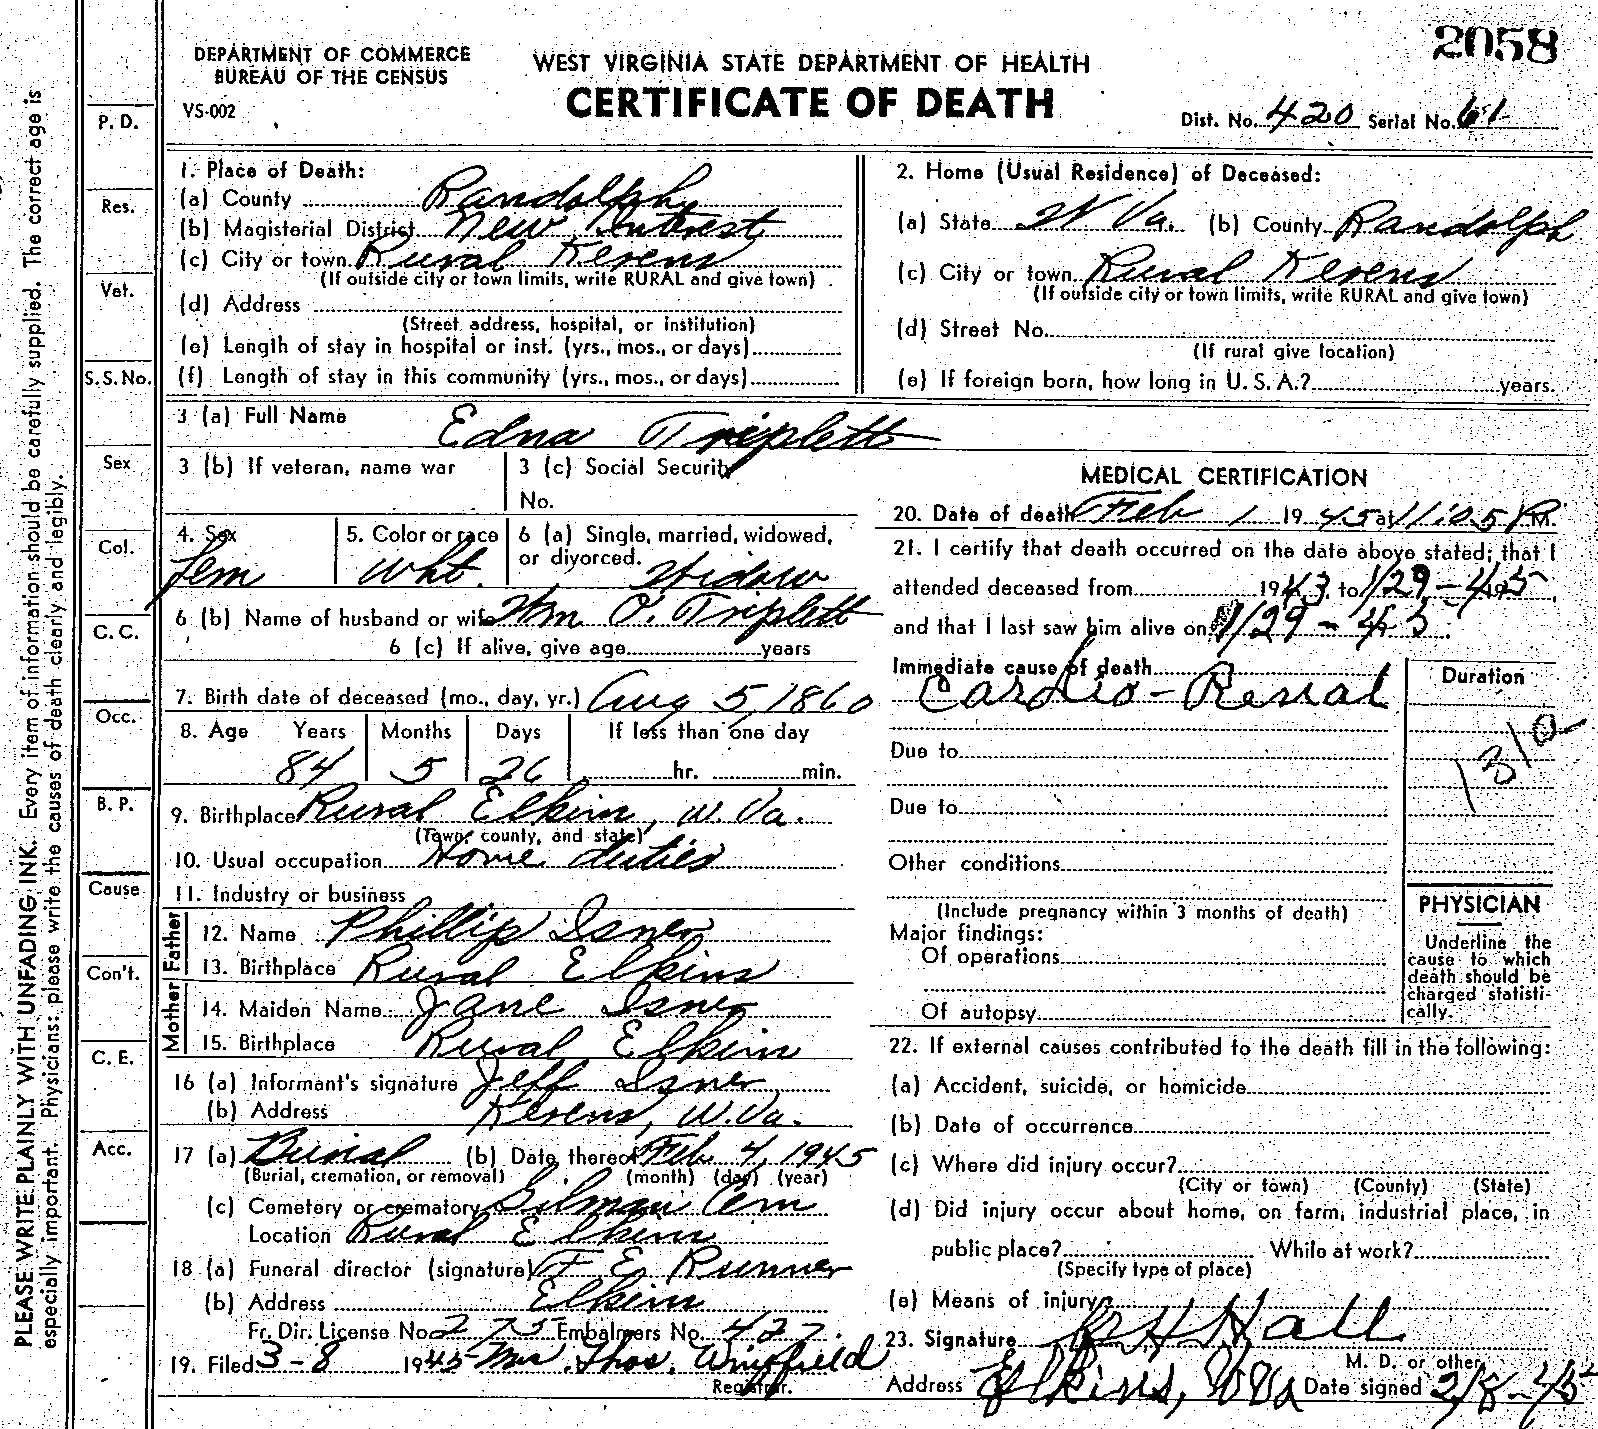 2058
DEPARTMENT OF COMMERCE
BUREAU OF THE CENSUS
VS-002
WEST VIRGINIA STATE DEPARTMENT OF HEALTH
CERTIFICATE OF DEATH
Dist. No. 420 Serial No. 61
PLEASE WRITE PLAINLY WITH UNFADING INK. Every item of information should be carefully supplied. The correct age is
especially important. Physicians: please write the causes of death clearly and legibly.
P. D.
Res.
Vet.
S.S.No.
Sex
Col.
C. C.
Occ.
B. P.
Cause
Con't.
C. E.
Acc.
1. Place of Death:
(a) County Randolph
(b) Magisterial District New Intrest
(c) City or town Rural Kerens
(If outside city or town limits, write RURAL and give town)
(d) Address
(Street address, hospital, or institution)
(e) Length of stay in hospital or inst. (yrs., mos., or days)
(f) Length of stay in this community (yrs., mos., or days)
2. Home (Usual Residence) of Deceased:
(a) State W Va. (b) County Randolph
(c) City or town Rural Kerens
(If outside city or town limits, write RURAL and give town)
(d) Street No.
(If rural give location)
(e) If foreign born, how long in U. S. A.? years.
3 (a) Full Name Edna Triplett
3 (b) If veteran, name war
3 (c) Social Security
No.
4. Sex Fem
5. Color or race Wht.
6 (a) Single, married, widowed,
or divorced. Widow
6 (b) Name of husband or wife Wm O. Triplett
6 (c) If alive, give age years
7. Birth date of deceased (mo., day, yr.) Aug 5, 1860
8. Age Years Months Days If less than one day
84 5 26 hr. min.
9. Birthplace Rural Elkins, W. Va.
(Town, county, and state)
10. Usual occupation Home duties
11. Industry or business
Father
12. Name Phillip Isner
13. Birthplace Rural Elkins
Mother
14. Maiden Name Jane Isner
15. Birthplace Rural Elkins
16 (a) Informant's signature Jeff Isner
(b) Address Kerens, W. Va.
17 (a) Burial (b) Date thereof Feb 4, 1945
(Burial, cremation, or removal) (month) (day) (year)
(c) Cemetery or crematory Gilman Cem
Location Rural Elkins
18 (a) Funeral director (signature) F E Runner
(b) Address Elkins
Fr. Dir. License No. 275 Embalmers No. 427.
19. Filed 3-8 1945 Mrs. Thos. Wingfield
Registrar.
MEDICAL CERTIFICATION
20. Date of death Feb 1 1945 at 11:05 P.M.
21. I certify that death occurred on the date above stated; that I
attended deceased from 1943 to 1/29-45
and that I last saw him alive on 1/29-45.
Immediate cause of death
Cardio-Renal
Duration
131a
Due to
Due to
Other conditions
(Include pregnancy within 3 months of death)
Major findings:
Of operations
Of autopsy
PHYSICIAN
Underline the
cause to which
death should be
charged statisti-
cally.
22. If external causes contributed to the death fill in the following:
(a) Accident, suicide, or homicide
(b) Date of occurrence
(c) Where did injury occur?
(City or town) (County) (State)
(d) Did injury occur about home, on farm, industrial place, in
public place? While at work?
(Specify type of place)
(e) Means of injury
23. Signature Hall
M. D. or other
Address Elkins, W Va Date signed 2/8-45